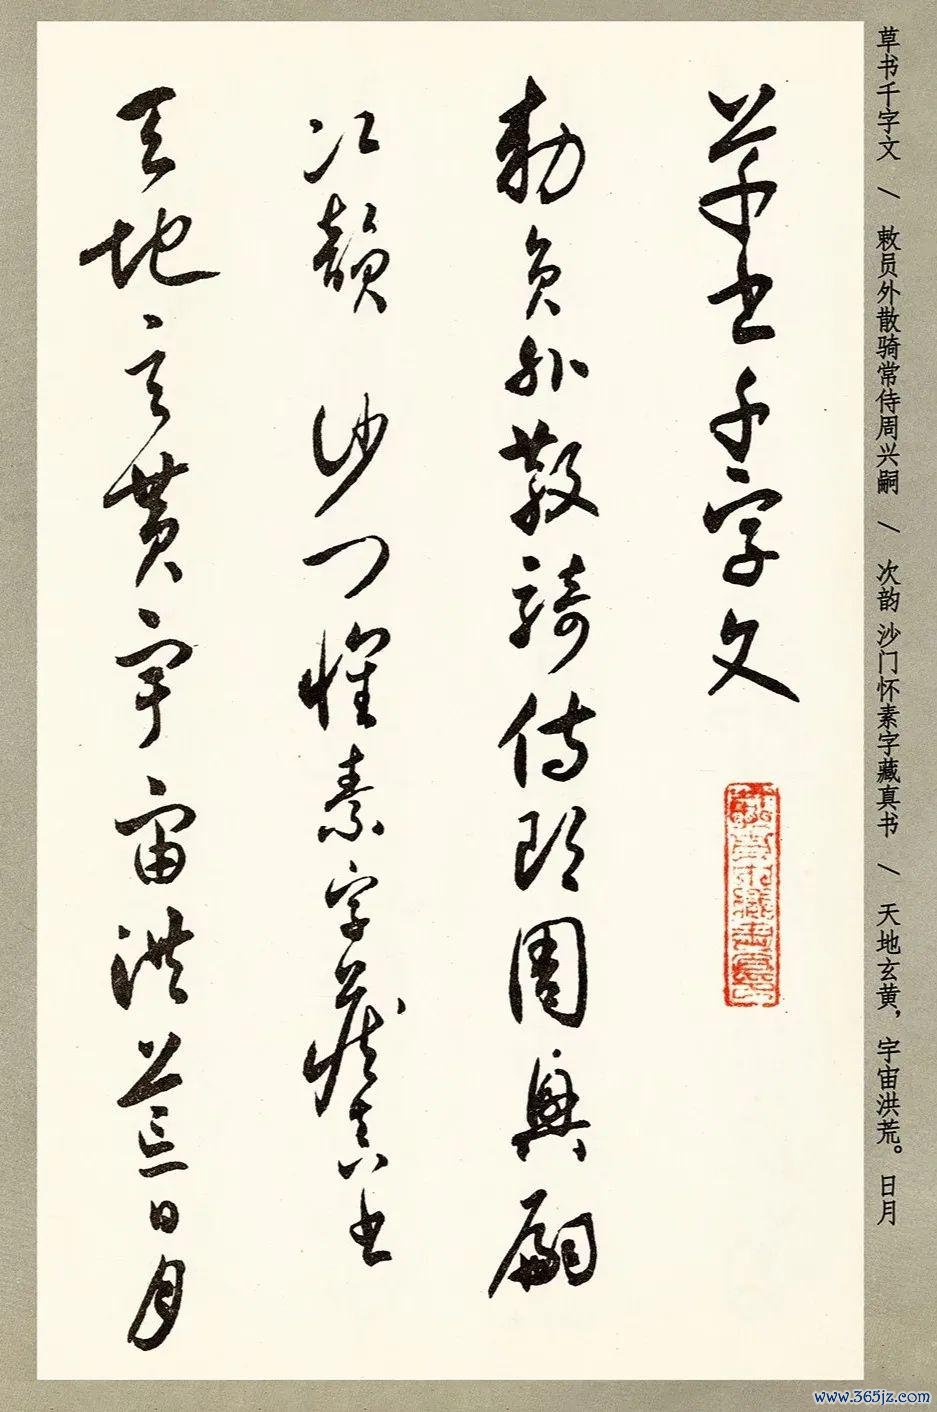 草书千字文 \ 敕员外散骑常侍周兴嗣 \ 次韵 沙门怀素字藏真书 \ 天地玄黄，宇宙洪荒。 日月
草書千字文
勅員外散騎侍郎周興嗣
次韻 沙門懷素字藏真書
天地玄黃宇宙洪荒日月
www.365jz.com